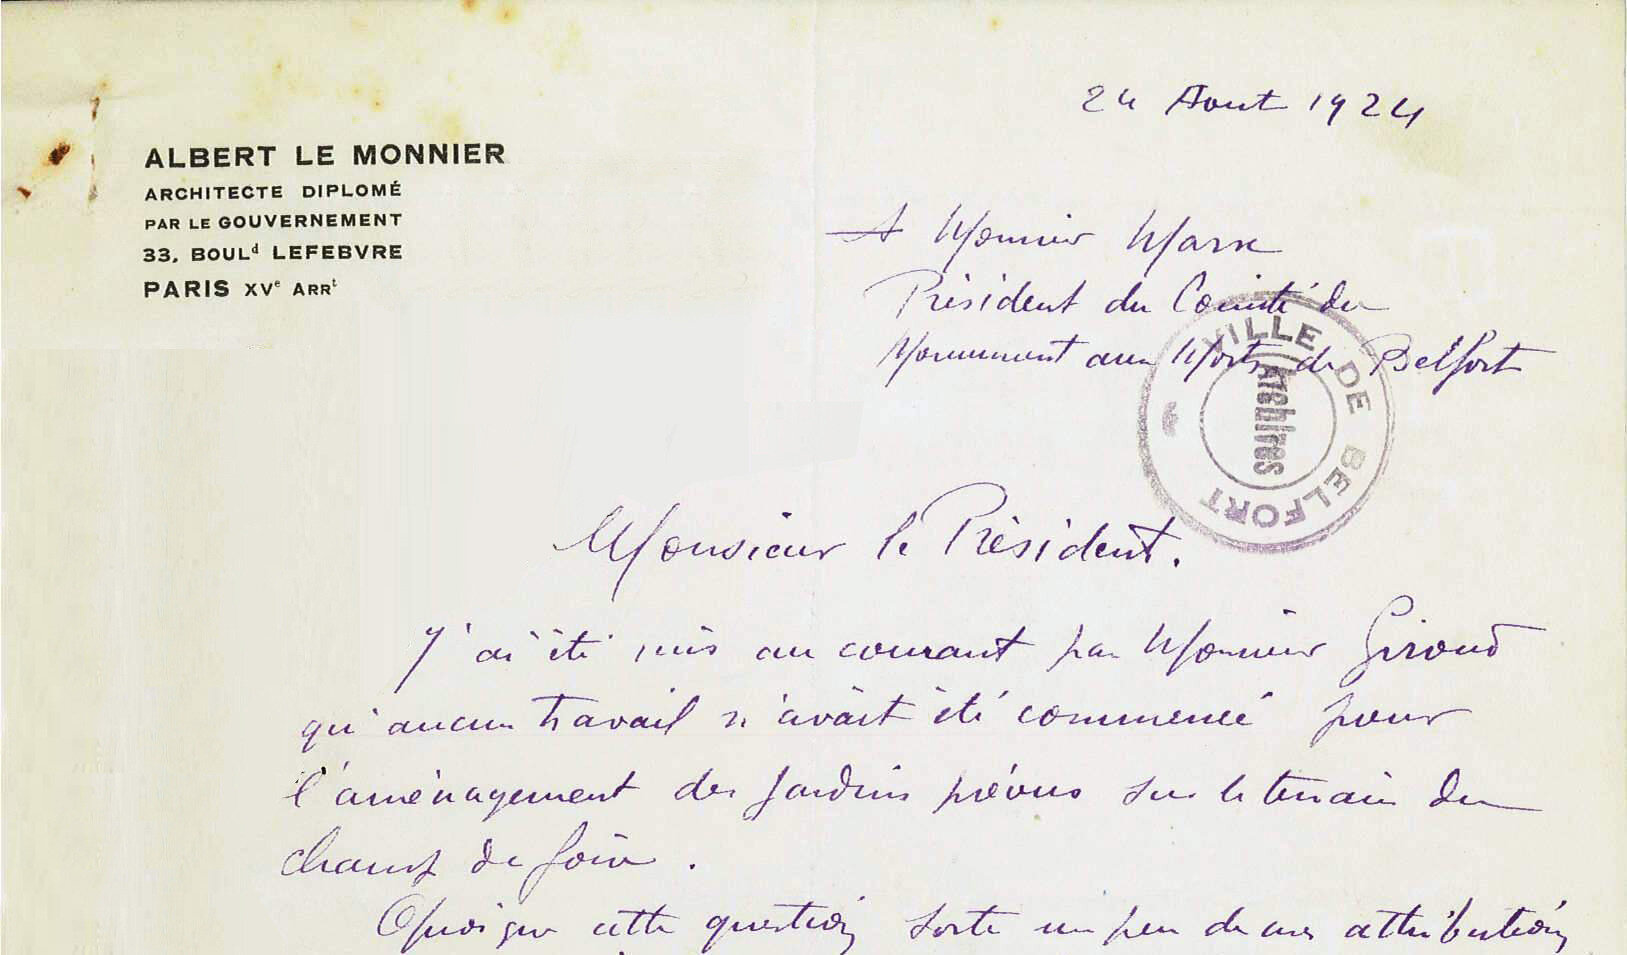 24 Aout 1924
ALBERT LE MONNIER
ARCHITECTE DIPLOMÉ
PAR LE GOUVERNEMENT
33, BOULd LEFEBVRE
PARIS XVe ARRt
A Monsieur Marx
Président du Comité du
Monument aux Morts de Belfort
VILLE DE BELFORT
Archives
Monsieur le Président.
J'ai été mis au courant par Monsieur Giroud
qu'aucun travail n'avait été commencé pour
l'aménagement des jardins prévus sur le terrain du
champ de foire.
Quoique cette question sorte un peu de mes attributions